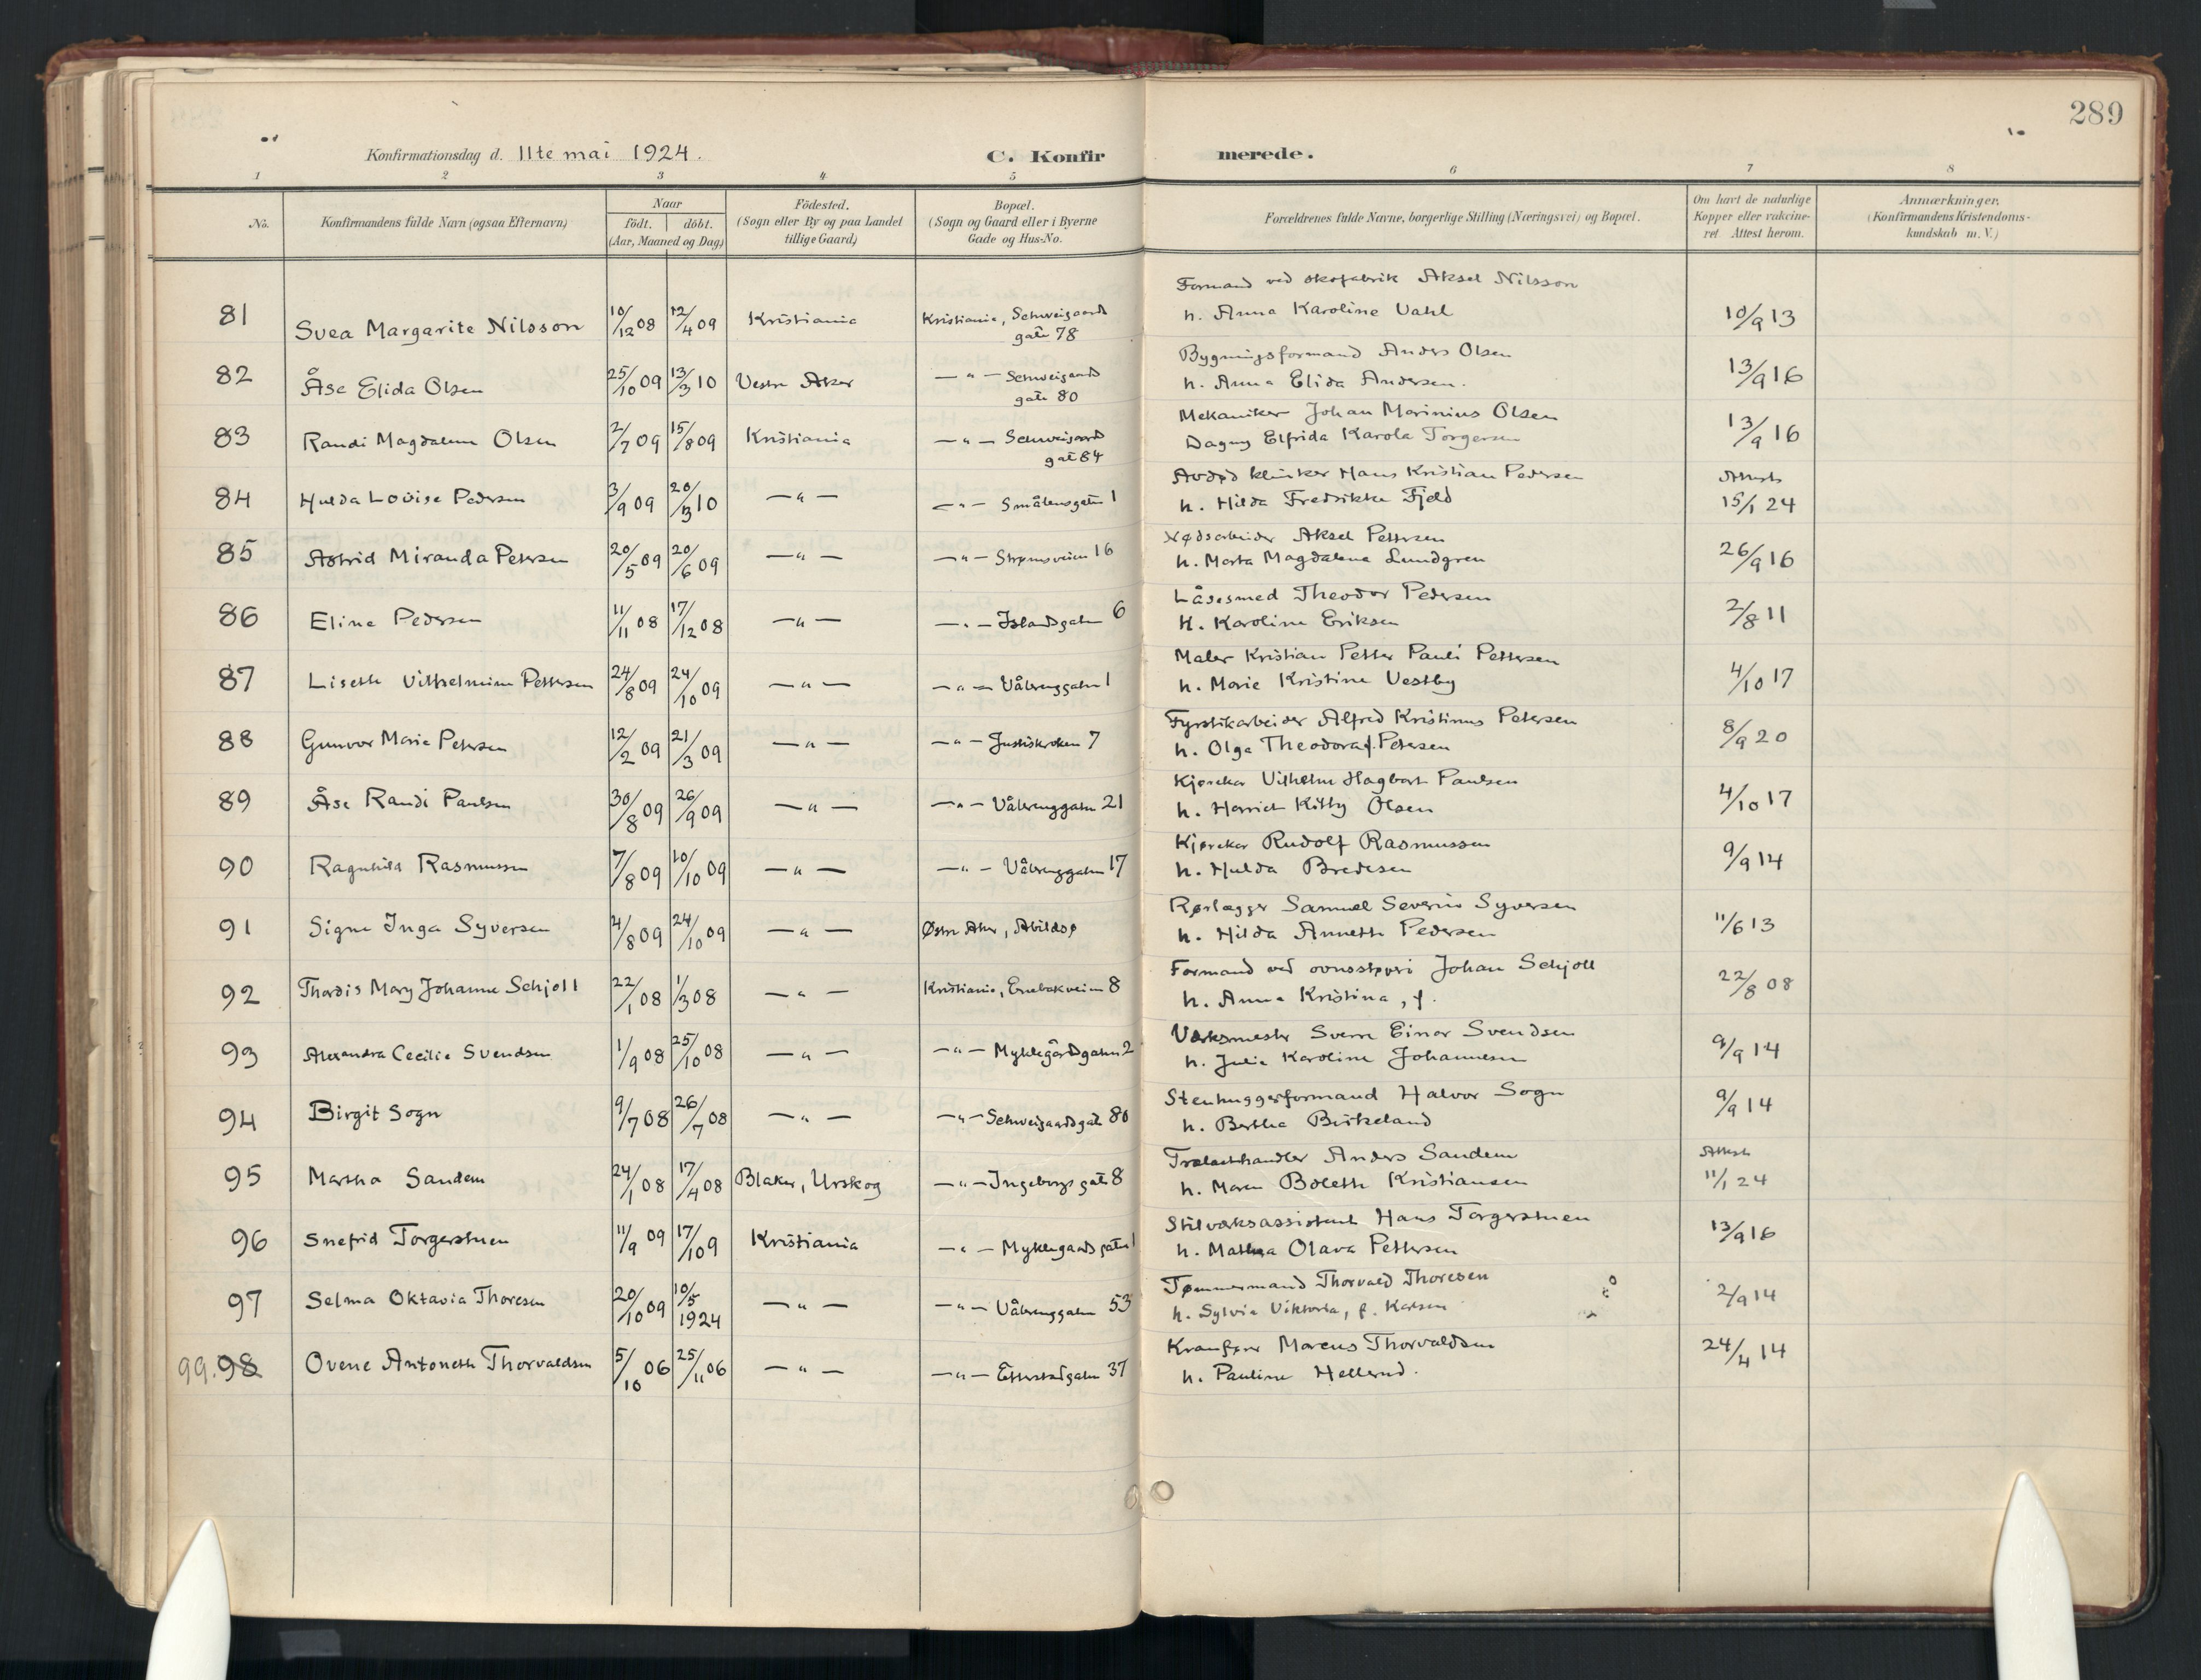 289
Konfirmationsdag d. 11te mai 1924.
C. Konfirmerede.
1 2 3 4 5 6 7 8
No.
Konfirmandens fulde Navn (ogsaa Efternavn)
Naar
født. døbt.
(Aar, Maaned og Dag)
Fødested.
(Sogn eller By og paa Landet
tillige Gaard)
Bopæl.
(Sogn og Gaard eller i Byerne
Gade og Hus-No.
Forældrenes fulde Navne, borgerlige Stilling (Næringsvei) og Bopæl.
Om havt de naturlige
Kopper eller vakcine-
ret. Attest herom.
Anmærkninger.
(Konfirmandens Kristendoms-
kundskab m. V.)
Formand ved skofabrik Aksel Nilsson
81 Svea Margarite Nilsson 10/12 08 12/4 09 Kristiania Kristiania, Schweigaards h. Anna Karoline Vahl 10/9 13
gate 78
Bygningsformand Anders Olsen
82 Åse Elida Olsen 25/10 09 13/3 10 Vestre Aker —"— Schweigaards h. Anna Elida Andersen. 13/9 16
gate 80
Mekaniker Johan Marinius Olsen
83 Randi Magdalene Olsen 2/7 09 15/8 09 Kristiania —"— Schweigaards Dagny Elfrida Karola Torgersen 13/9 16
gate 84
Avdød klinker Hans Kristian Pedersen Attest
84 Hulda Lovise Pedersen 3/9 09 20/3 10 —"— —"— Smålensgaten 1 h. Hilda Fredrikke Fjeld 15/1 24
Aksel Pettersen
85 Astrid Miranda Petersen 20/5 09 20/6 09 —"— —"— Strømsveien 16 h. Marta Magdalena Lundgren 26/9 16
Låsesmed Theodor Pedersen
86 Eline Pedersen 11/11 08 17/12 08 —"— —"— Islandsgaten 6 h. Karoline Eriksen 2/8 11
Maler Kristian Petter Pauli Pettersen
87 Lisette Vilhelmine Pettersen 24/8 09 24/10 09 —"— —"— Vålerenggaten 1 h. Marie Kristine Vestby 4/10 17
Fyrstikarbeider Alfred Kristinus Petersen
88 Gunvor Marie Petersen 12/2 09 21/3 09 —"— —"— Justiskroken 7 h. Olga Theodora f. Petersen 8/9 20
Kjørekar Vilhelm Hagbart Paulsen
89 Åse Randi Paulsen 30/8 09 26/9 09 —"— —"— Vålerenggaten 21 h. Harriet Kitty Olsen 4/10 17
Kjørekar Rudolf Rasmussen
90 Ragnhild Rasmussen 7/8 09 10/10 09 —"— —"— Vålerenggaten 17 h. Hulda Bredesen 9/9 14
Rørlægger Samuel Severin Syversen
91 Signe Inga Syversen 4/8 09 24/10 09 —"— Østre Aker, Abildsø h. Hilda Annette Pedersen 11/6 13
Formand ved ovnsstøperi Johan Schjoll
92 Thordis Mary Johanne Schjoll 22/1 08 1/3 08 —"— Kristiania, Enebakveien 8 h. Anna Kristina, f. 22/8 08
Verksmester Sverre Einar Svendsen
93 Alexandra Cecilie Svendsen 1/9 08 25/10 08 —"— —"— Myklegårdgaten 2 h. Julie Karoline Johannesen 9/9 14
Stenhuggerformand Halvor Sogn
94 Birgit Sogn 9/7 08 26/7 08 —"— —"— Schweigaards gate 80 h. Berthe Birkeland 9/9 14
Trælasthandler Anders Sandem Attest
95 Martha Sandem 24/1 08 17/4 08 Blaker, Urskog —"— Ingeborgs gate 8 h. Maren Bolette Kristiansen 11/1 24
Stilverksassistent Hans Torgerstuen
96 Snefrid Torgerstuen 11/9 09 17/10 9 Kristiania —"— Myklegaards gaten 1 h. Mathea Olava Pettersen 13/9 16
Tømmermand Thorvald Thoresen
97 Selma Oktavia Thoresen 20/10 09 10/5 1924 —"— —"— Vålerenggaten 53 h. Sylvia Viktoria, f. Karlsen 2/9 14
Kranfører Marcus Thorvaldsen
99. 98 Ovene Antonette Thorvaldsen 5/10 06 25/11 06 —"— —"— Etterstadgaten 37 h. Pauline Hellerud. 24/4 14